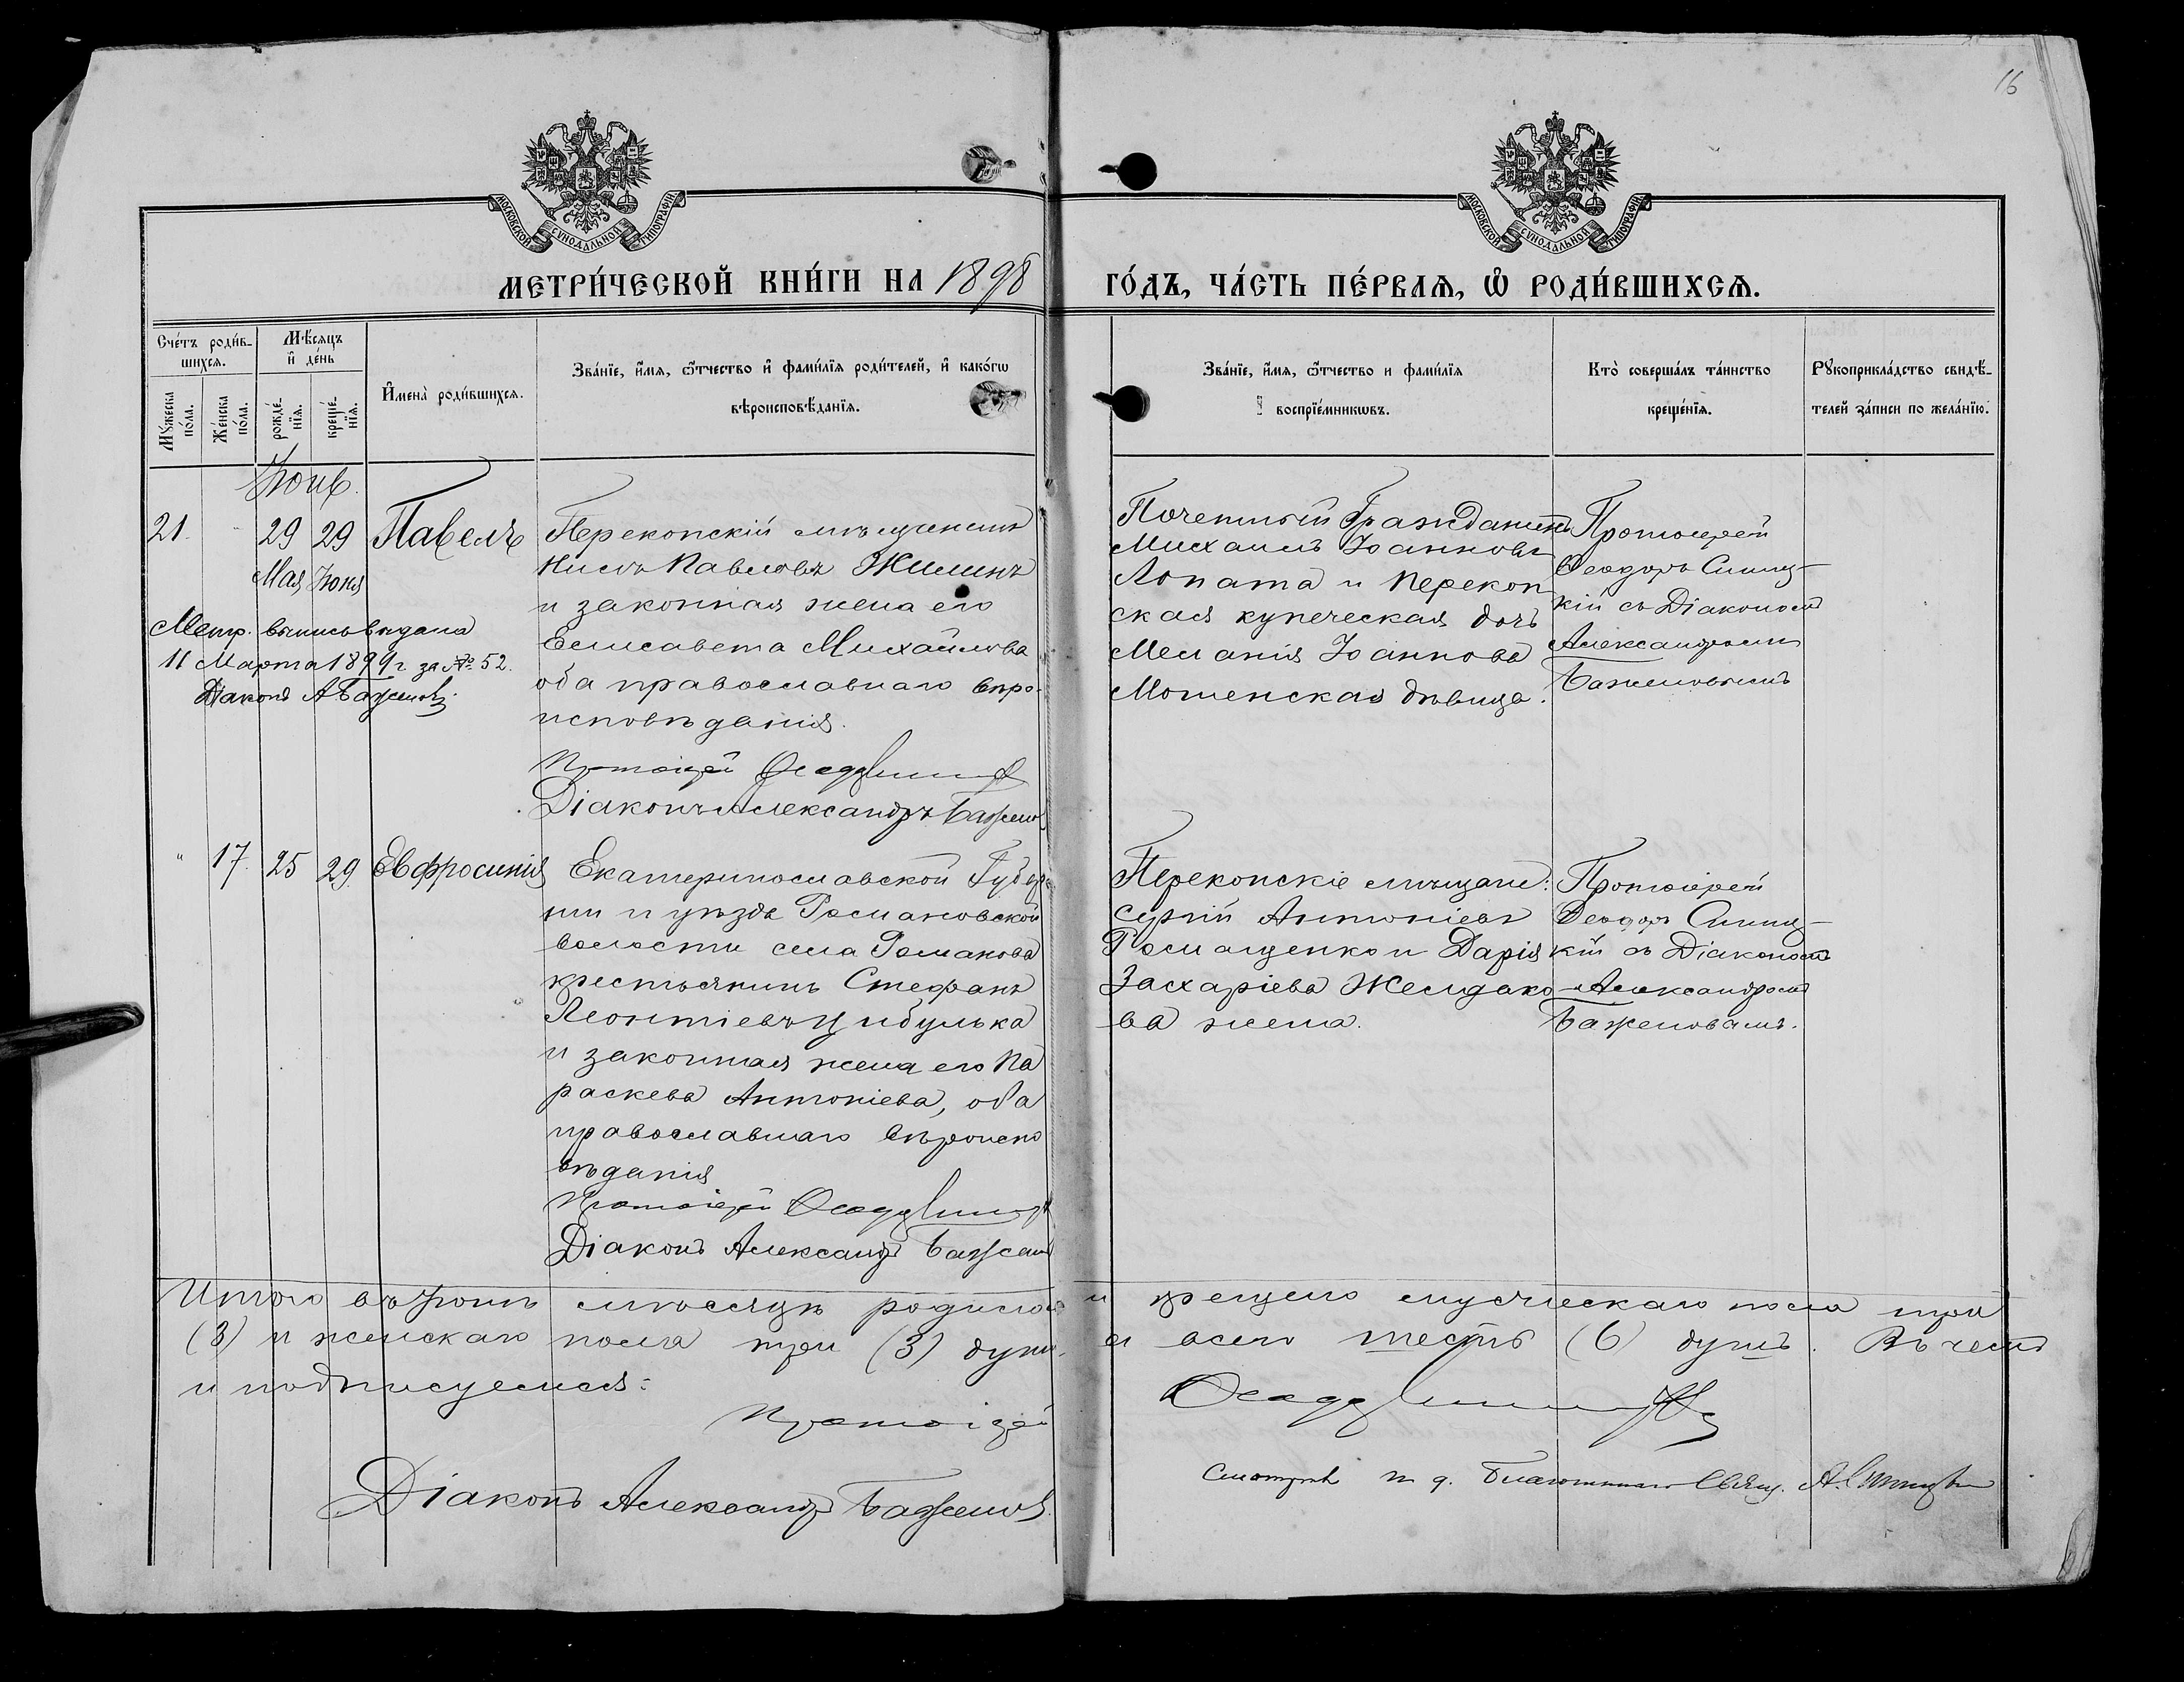 16
МОСКОВСКОЙ СѴНОДАЛЬНОЙ ТИПОГРАФІИ
МОСКОВСКОЙ СѴНОДАЛЬНОЙ ТИПОГРАФІИ
МЕТРИ́ЧЕСКОЙ КНИ́ГИ НА 1898 ГО́ДЪ, ЧА́СТЬ ПЕ́РВАѦ, Ѡ РОДИ́ВШИХСѦ.
Сче́тъ роди́в-
шихсѧ.
Мꙋ́жеска
по́ла.
Же́нска
по́ла.
Мѣ́сѧцъ
и҆ де́нь
рожде́-
нїѧ.
креще́-
нїѧ.
И҆мена̀ роди́вшихсѧ.
Зва́нїе, и҆́мѧ, ѻ҆́тчество и҆ фами́лїѧ роди́телей, и҆ како́гѡ
вѣроисповѣ́данїѧ.
Зва́нїе, и҆́мѧ, ѻ҆́тчество и фами́лїѧ
воспрїе́мникѡвъ.
Кто̀ соверша́лъ та́инство
креще́нїѧ.
Рꙋкоприкла́дство свидѣ́-
телей за́писи по жела́нїю.
21.
29
29
Мая Іюня
Павелъ
Перекопскій мѣщанинъ
Нилъ Павловъ Жилинъ
и законная жена его
Елисавета Михайлова
оба православнаго вѣро-
исповѣданія.
Протоіерей
Діаконъ Александръ Баженов
Метр. выпись выдана
11 Марта 1899 г за № 52.
Діаконъ А Баженовъ.
Почетный Гражданинъ
Михаилъ Іоанновъ
Лопата и Перекоп
ская купеческая дочь
Меланія Іоаннова
Мошенская дѣвица.
Протоіерей
Ѳеодоръ Синиц-
кій съ Діакономъ
Александромъ
Баженовымъ
" 17. 25 29. Евфросинія
Екатеринославской Губер
ніи и уѣзда Романовской
волости села Романова
крестьянинъ Стефанъ
Леонтіевъ Цибулька
и законная жена его Па
раскева Антоніева, оба
православнаго вѣроиспо
вѣданія
Протоіерей
Діаконъ Александръ Баженов
Перекопскіе мѣщане:
Сергій Антоніевъ
Ромащенко и Дарія
Захаріева Желдако
ва жена.
Протоіерей
Ѳеодоръ Синиц-
кій съ Діакономъ
Александромъ
Баженовымъ.
Итого въ Іюнѣ мѣсяцѣ родилось и крещено мужескаго пола три
(3) и женскаго пола три (3) души, а всего шесть (6) душъ. Въ чемъ
и подписуемся:
Протоіерей
Діаконъ Александръ Баженовъ.
Смотрѣлъ и д. Благочиннаго Свящ. А. Синицкій